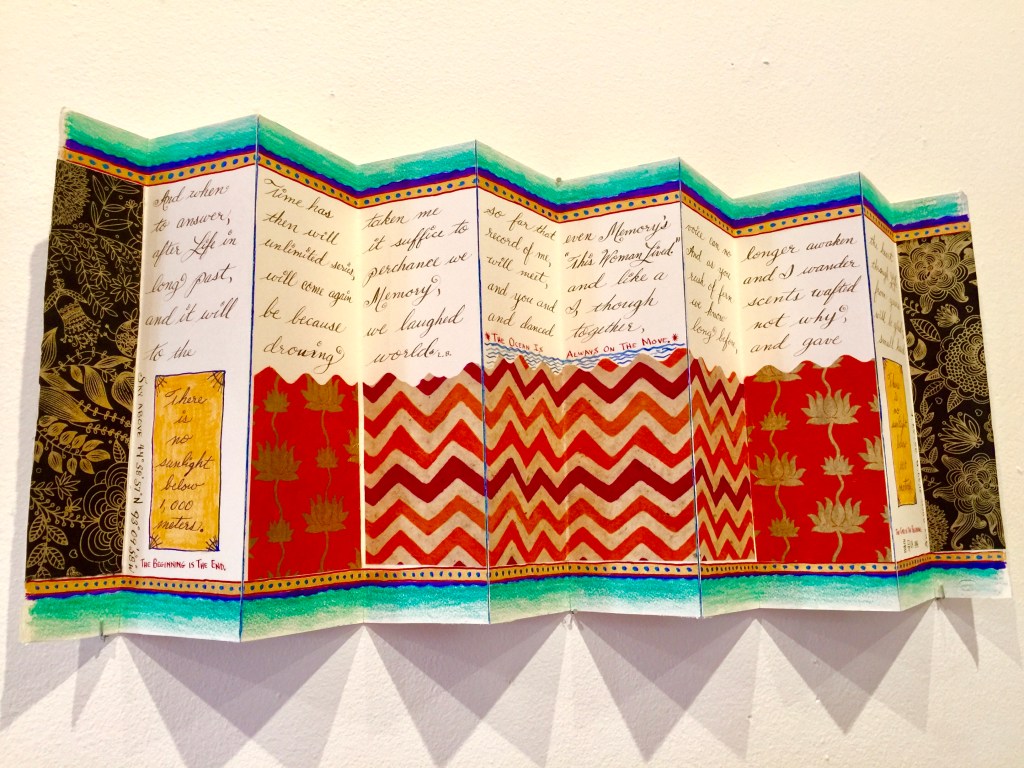 And when Time has taken me so far that even Memory's voice can no longer awaken
to answer, then will it suffice to record of me, "This Woman Lived." And as you and I wander
after Life in unlimited series, perchance we will meet, and like a scents wafted
long past, will come again Memory, and you and I, though we know not why,
and it will be because we laughed and danced together, long before, and gave
to the drowing world
* The Ocean Is Always On The Move. *
There
is
no
sunlight
below
1,000
meters.
Sky Above 44° 58' 51" N 93°
The Beginning is The End.